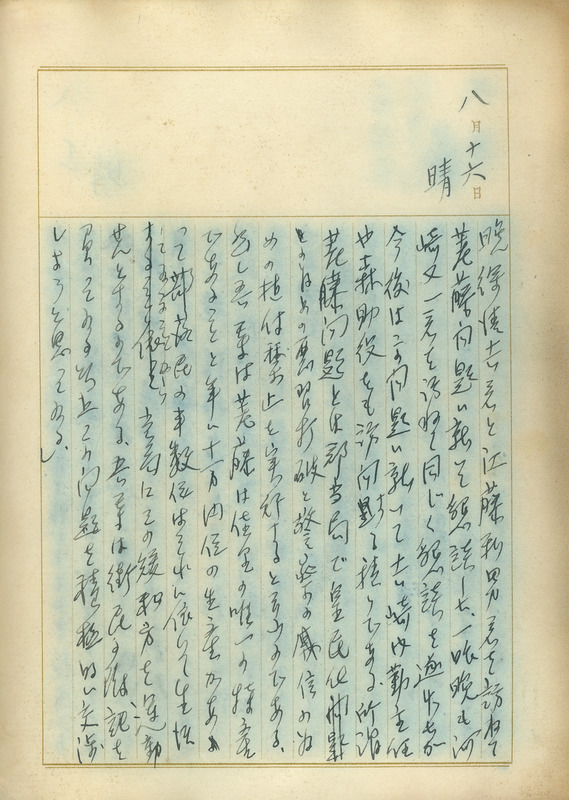 八月十六日
晴
晩徐清吉君と江藤利男君を訪ねて
荖藤問題に就て懇談した、一昨晩も河
崎又一君を訪ねて同じく懇談を遂げたが
今後は この問題に就いて 山崎内勤主任
や森助役をも訪問する積りである。所謂
荖藤問題とは郡当局で皇民化
の為めの悪習打破と警察の威信の為
めの植付禁止を実行すると云ふのである、
然し吾輩は荖藤は佳里の唯一の特産
であること と年に十万円位の生産がある
って部落民の半数位はそれに依りて生活
して
当局にこの緩和方を運動
せんとするのである、吾輩は街民の
買ってゐる 以上この問題を積極的に交渉
しようと思ってゐる、